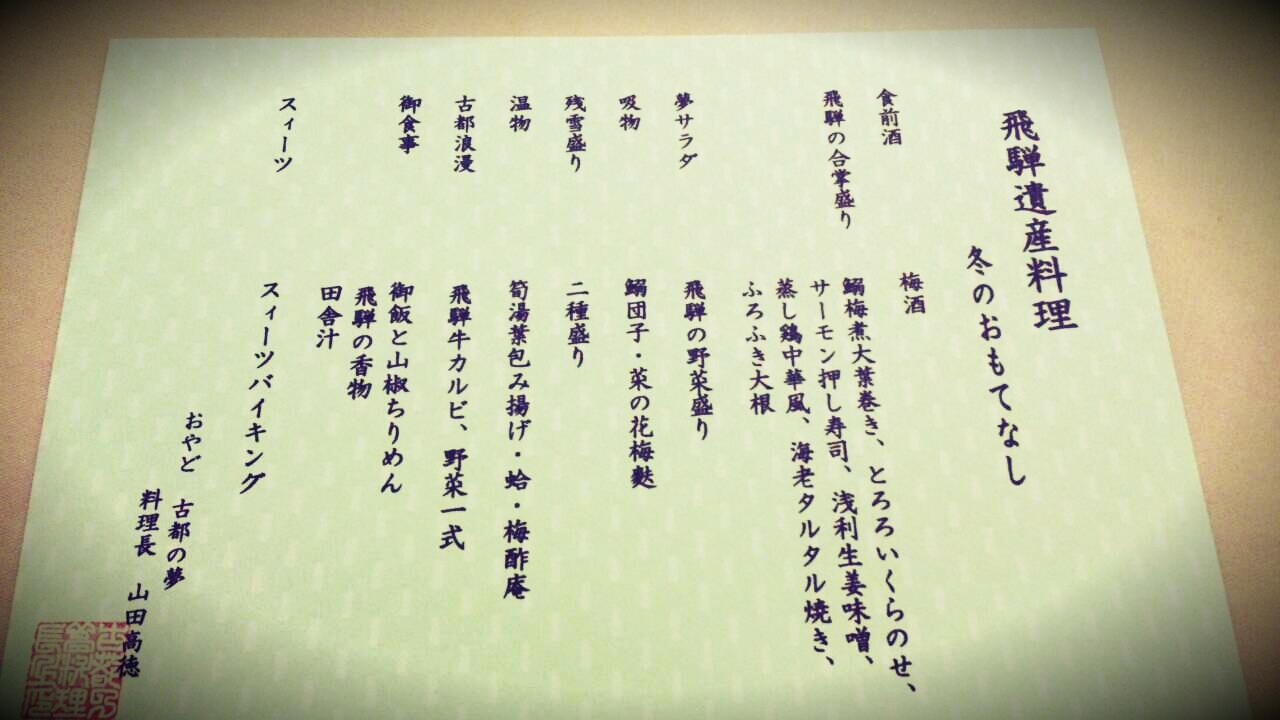 飛騨遺産料理
冬のおもてなし
食前酒
梅酒
飛騨の合掌盛り
鰯梅煮大葉巻き、とろろいくらのせ、
サーモン押し寿司、浅利生姜味噌、
蒸し鶏中華風、海老タルタル焼き、
ふろふき大根
夢サラダ
飛騨の野菜盛り
吸物
鰯団子・菜の花梅麩
残雪盛り
二種盛り
温物
筍湯葉包み揚げ・蛤・梅酢庵
古都浪漫
飛騨牛カルビ、野菜一式
御食事
御飯と山椒ちりめん
飛騨の香物
田舎汁
スィーツ
スィーツバイキング
おやど 古都の夢
料理長 山田高徳